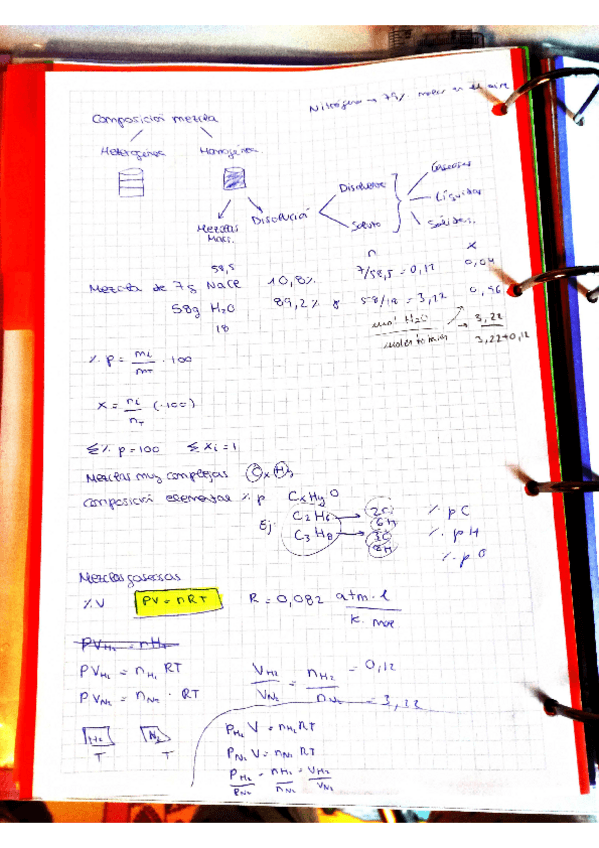 Nitrógeno → 79% moles en el aire
Composición mezcla
Heterogénea Homogénea
Mezclas Disolución
Disolvente
Soluto
Gaseosas
Líquidas
Sólidas
n x
58,5
Mezcla de 7g NaCl 10,8% 7/58,5 = 0,12 0,04
58g H2O 89,2% 58/18 = 3,22 0,96
18
mol H2O → 3,22
3,22+0,12
% p = mi/mT · 100
x = ni/nT (·100)
Σ% p = 100 Σxi = 1
Mezclas muy complejas CxHy
Composición elemental % p. CxHyO
Ej: C2H6 → 2C 6H % p C
C3H8 → 3C 8H % p H
% p O
Mezclas gaseosas
% V PV = nRT R = 0,082 atm·l / K·mol
PVH2 = nH2
PVH2 = nH2 RT VH2/VN2 = nH2/nN2 = 0,12 = 3,22
PVN2 = nN2 · RT
H2 N2
T T
PH2 V = nH2 RT
PN2 V = nN2 RT
PH2/PN2 = nH2/nN2 = VH2/VN2